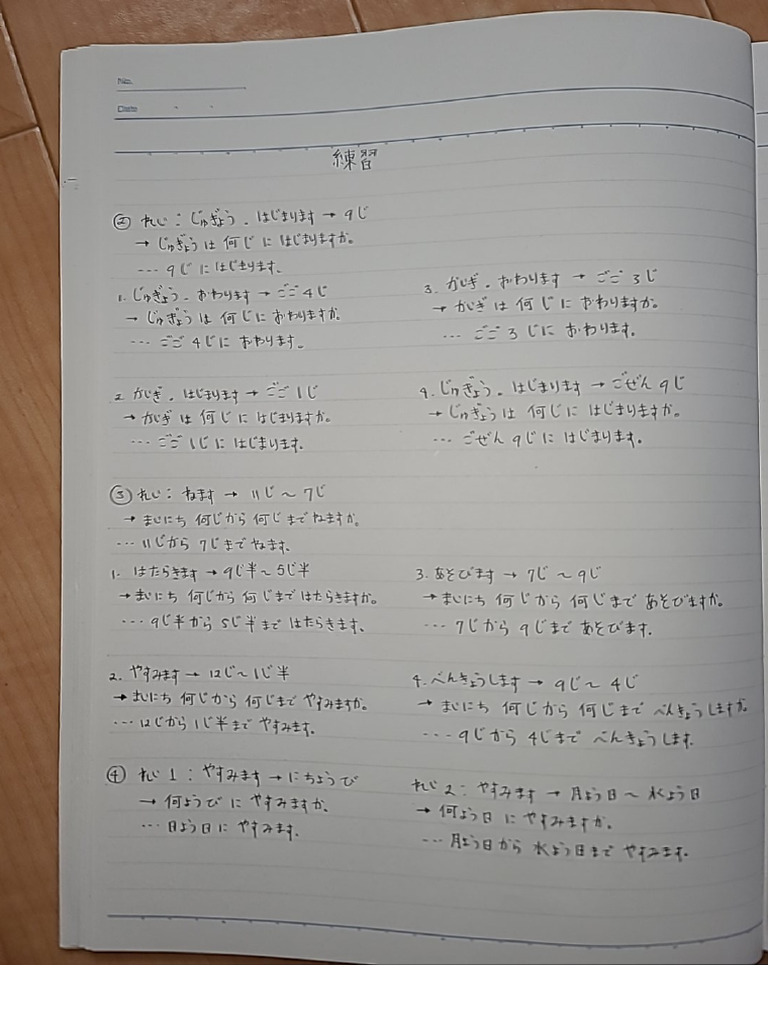 No.
Date
練習
② れい：じゅぎょう、はじまります → 9じ
→ じゅぎょうは 何じに はじまりますか。
… 9じに はじまります。
1. じゅぎょう、おわります → ごご 4じ
→ じゅぎょうは 何じに おわりますか。
… ごご 4じに おわります。
2. かいぎ、はじまります → ごご 1じ
→ かいぎは 何じに はじまりますか。
… ごご 1じに はじまります。
3. かいぎ、おわります → ごご 3じ
→ かいぎは 何じに おわりますか。
… ごご 3じに おわります。
4. じゅぎょう、はじまります → ごぜん 9じ
→ じゅぎょうは 何じに はじまりますか。
… ごぜん 9じに はじまります。
③ れい：ねます → 11じ～7じ
→ まいにち 何じから 何じまで ねますか。
… 11じから 7じまで ねます。
1. はたらきます → 9じ半～5じ半
→ まいにち 何じから 何じまで はたらきますか。
… 9じ半から 5じ半まで はたらきます。
2. やすみます → 12じ～1じ半
→ まいにち 何じから 何じまで やすみますか。
… 12じから 1じ半まで やすみます。
3. あそびます → 7じ～9じ
→ まいにち 何じから 何じまで あそびますか。
… 7じから 9じまで あそびます。
4. べんきょうします → 9じ～4じ
→ まいにち 何じから 何じまで べんきょうしますか。
… 9じから 4じまで べんきょうします。
④ れい 1：やすみます → にちようび
→ 何ようびに やすみますか。
… 日よう日に やすみます。
れい 2：やすみます → 月よう日～水よう日
→ 何よう日に やすみますか。
… 月よう日から 水よう日まで やすみます。